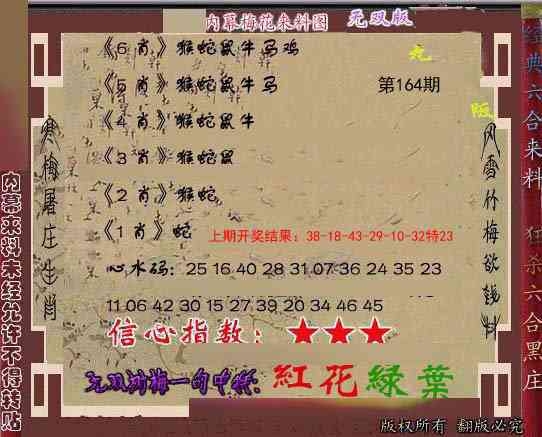 内幕梅花来料图 无双版
《6肖》猴蛇鼠牛马鸡
《5肖》猴蛇鼠牛马 第164期
《4肖》猴蛇鼠牛
《3肖》猴蛇鼠
《2肖》猴蛇
《1肖》蛇
上期开奖结果：38-18-43-29-10-32特23
心水码：25 16 40 28 31 07 36 24 35 23
11 06 42 30 15 27 39 20 34 46 45
信心指数：★★★
紅花綠葉
版权所有 翻版必究
寒梅屠庄生肖
风雪竹梅欲钱料
内幕来料未经允许不得转贴
经典六合来料 狂杀六合黑庄